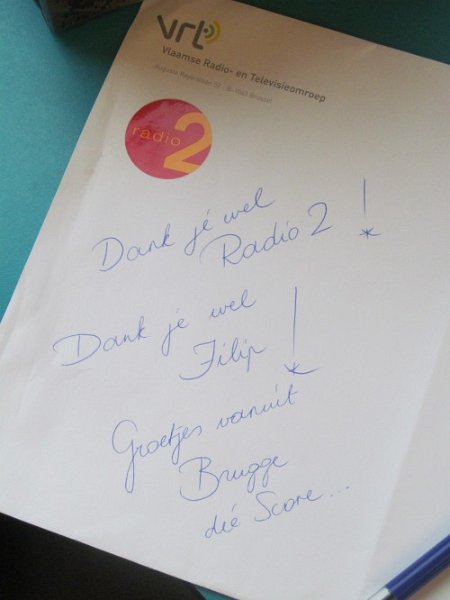 vrt
Vlaamse Radio- en Televisieomroep
Auguste Reyerslaan 52 · B-1043 Brussel
radio 2
Dank je wel
Radio 2 !
Dank je wel
Filip !
Groetjes vanuit
Brugge
dié Score...